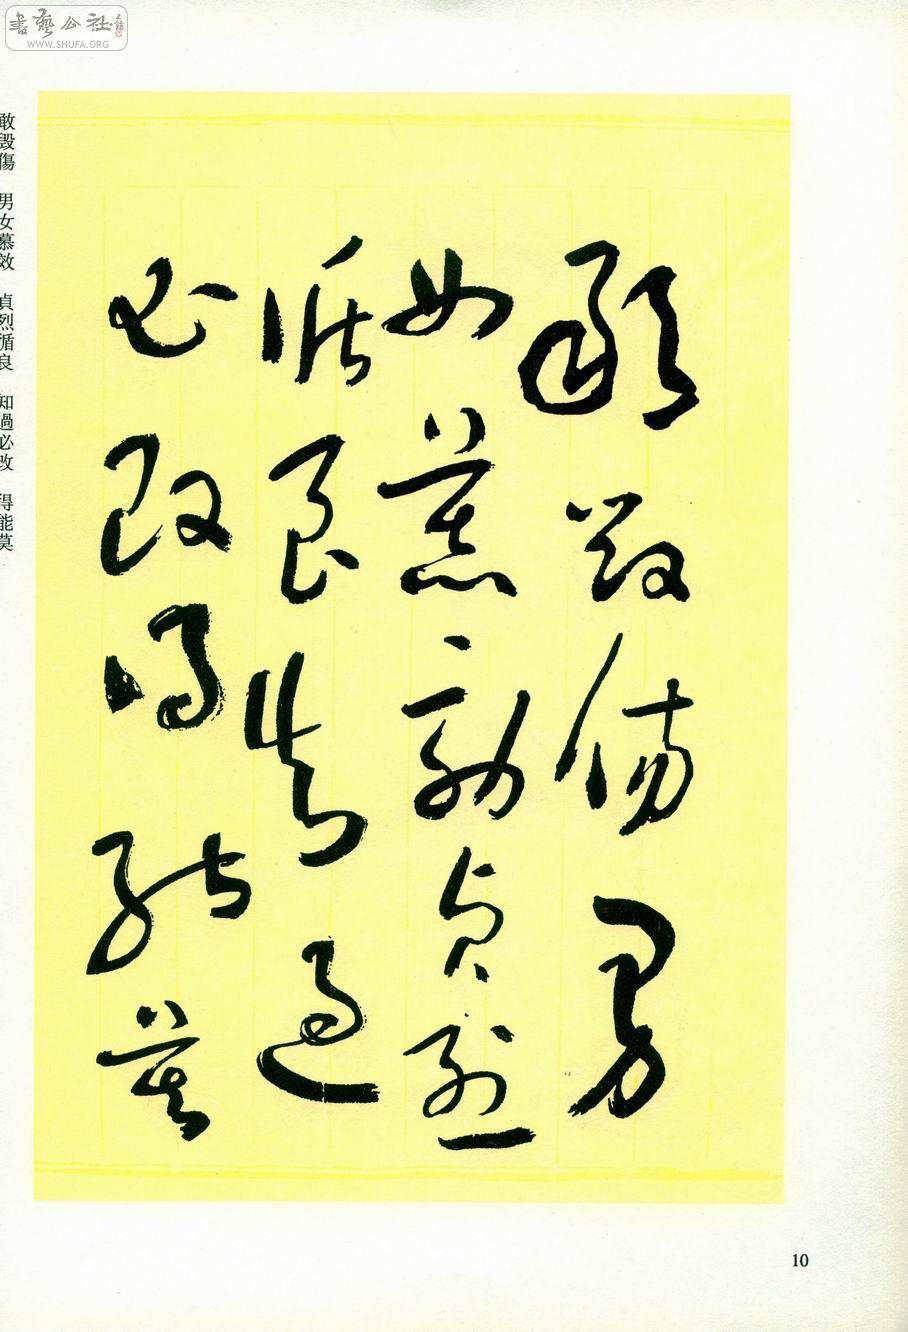 書藝公社
WWW.SHUFA.ORG
敢毀傷男
女慕效貞烈
循良知過
必改得能莫
敢毀傷 男女慕效 貞烈循良 知過必改 得能莫
10